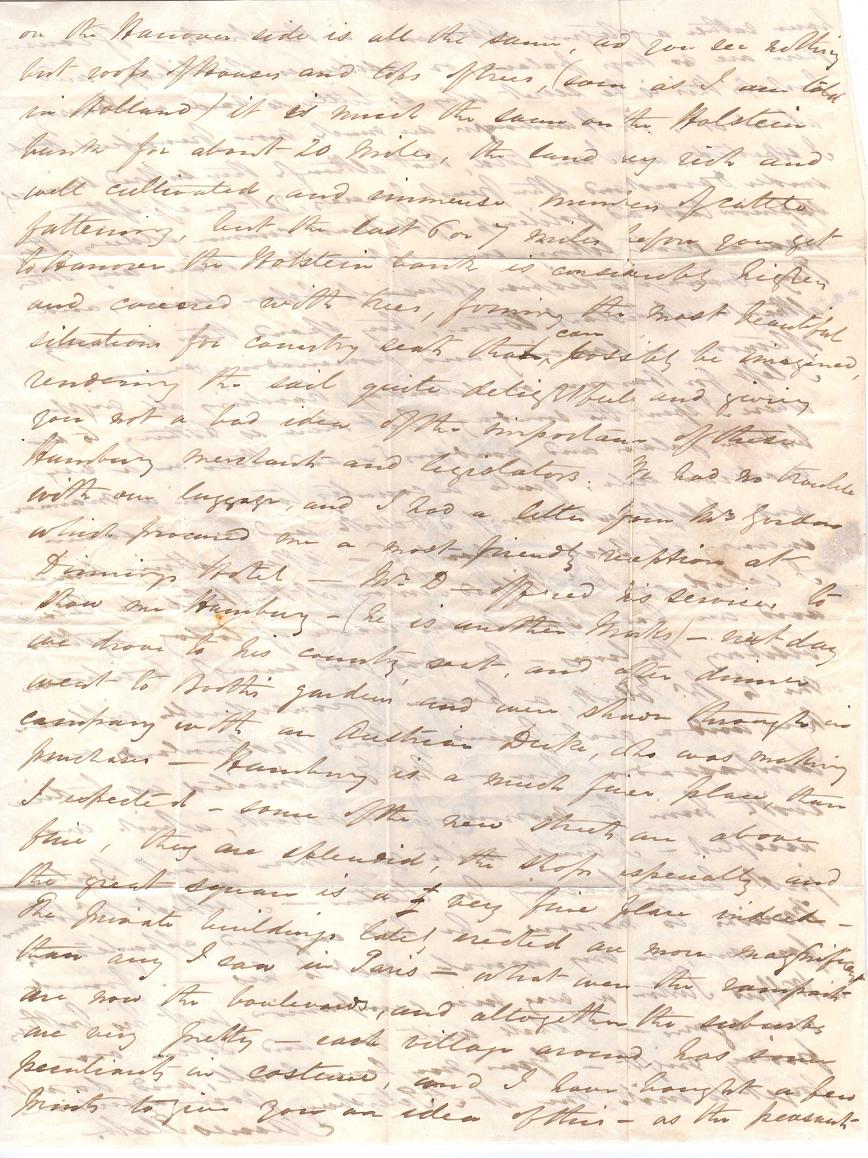 on the Hanover side is all the same, ad you see nothing
but roofs of Houses and tops of trees, (even as I am told
in Holland) it is much the same on the Holstein
bank for about 20 miles, the land vy rich and
well cultivated, and immense numbers of cattle
fattening, but the last 6 or 7 miles before you get
to Hanover the Holstein bank is considerably higher
and covered with trees, forming the most beautiful
situations for country seats that can possibly be imagined,
rendering the sail quite delightful and giving
you not a bad idea of the importance of these
Hamburg merchants and legislators. We had no trouble
with our luggage, and I had a letter from Mr Gordon
which procured me a most friendly reception at
Hotel — Mr D — offered his services to
show me Hamburg — (he is another ) — next day
we drove to his country seat, and after dinner
went to Booth's gardens, and were shewn through in
company with an Austrian Duke, who was making
purchases — Hamburg is a much finer place than
I expected — some of the new streets are above
fine, they are splendid, the shops especially, and
the great square is a very fine place indeed —
The Private buildings lately erected are more magnificent
than any I saw in Paris — what were the ramparts
are now the boulevards, and altogether the suburbs
are very pretty — each village around, has some
peculiarity in costume, and I have bought a few
prints to give you an idea of this — as the peasants